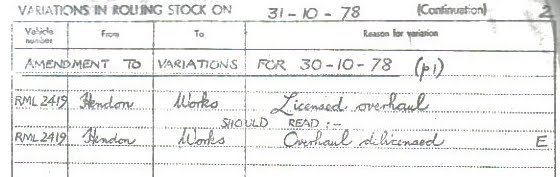 VARIATIONS IN ROLLING STOCK ON 31-10-78 (Continuation) 2
Vehicle number From To Reason for variation
AMENDMENT TO VARIATIONS FOR 30-10-78 (p1)
RML 2419 Hendon Works Licensed overhaul
SHOULD READ :-
RML 2419 Hendon Works Overhaul delicensed E